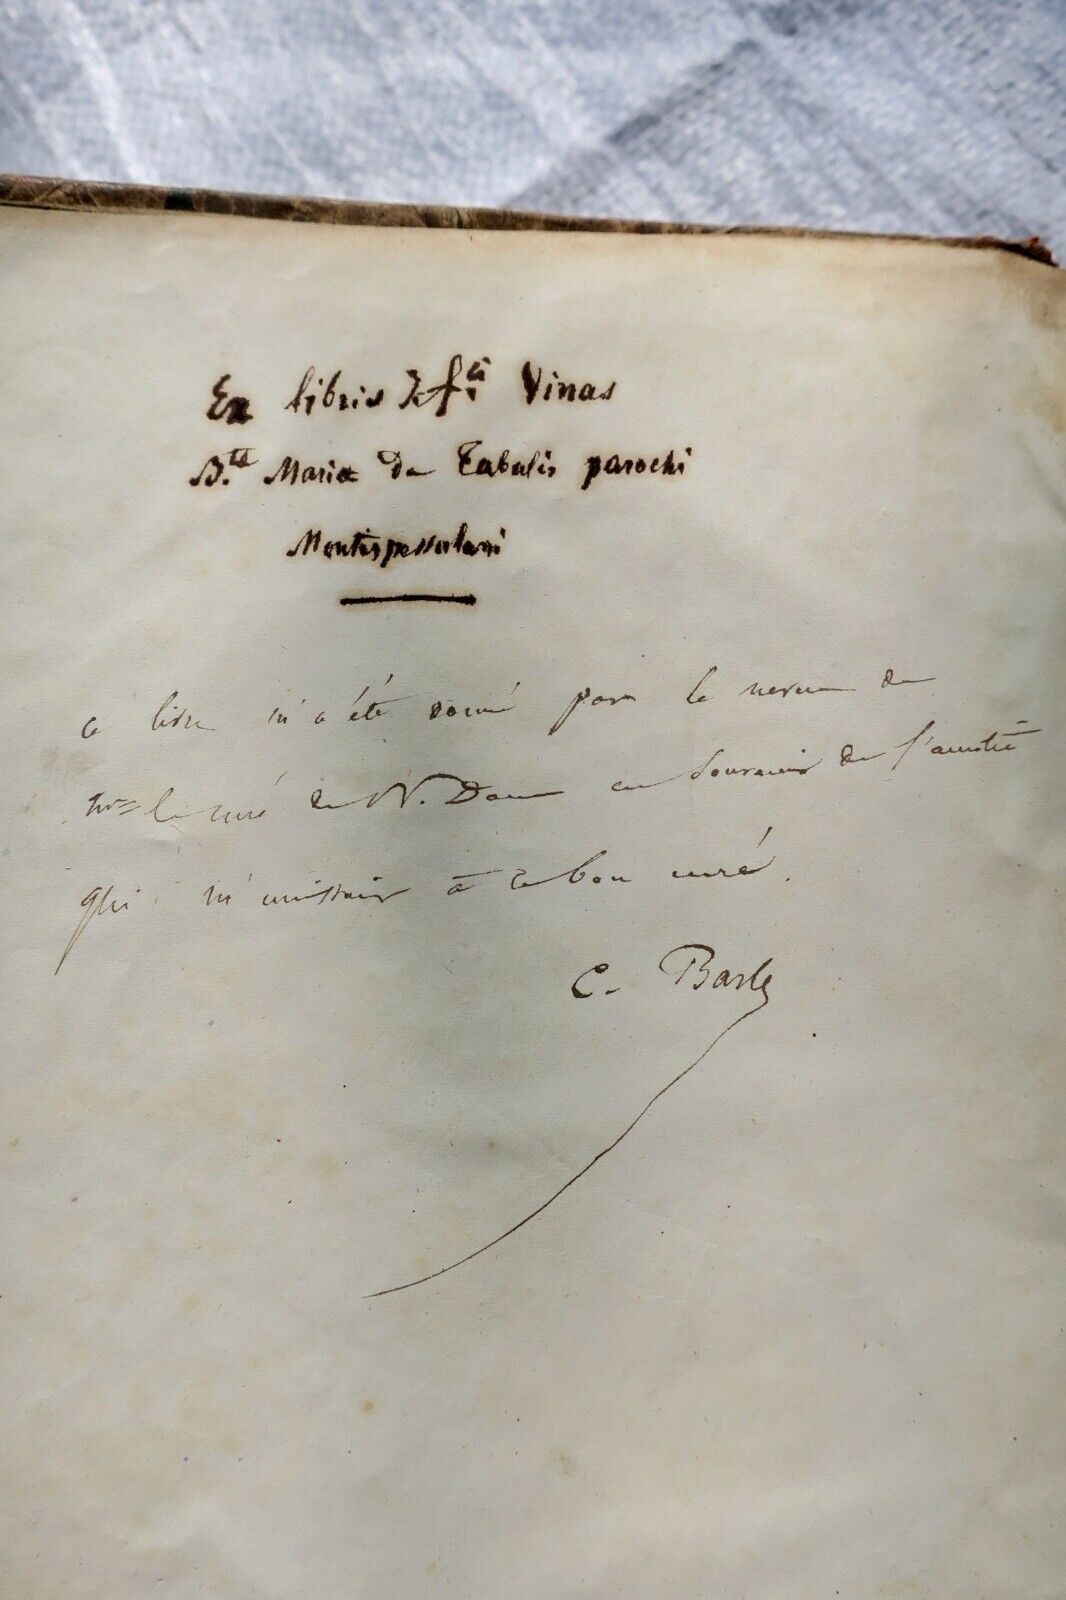 Ex libris Vinas
B.tæ Mariæ De Tabulis parochi
Montispessulani
Ce livre m'a été donné par le neveu de
le curé de N. Dame en souvenir de l'amitié
qui m'unissait à ce bon curé.
C. Barle